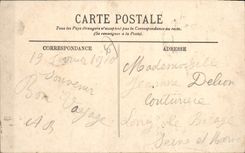 CARTE POSTALE
Tous les Pays étrangers n'acceptent pas la Correspondance au recto.
(Se renseigner à la Poste)
CORRESPONDANCE
ADRESSE
19 Février 1910
Souvenir
Bon Voyage
Mademoiselle
Delion
Couturière
Seine et Marne